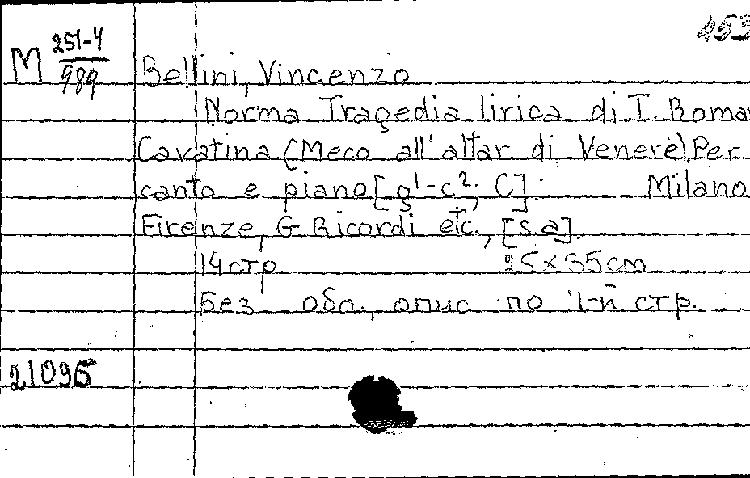 453
M 251-4
989
Bellini, Vincenzo
Norma Tragedia lirica di T. Roma
Cavatina (Meco all'altar di Venere) Per
canto e piano [g¹-c²; C] Milano
Firenze, G Ricordi etc., [s.a]
14 стр 25x35cm
Без обл., опис по 1-й стр.
21096